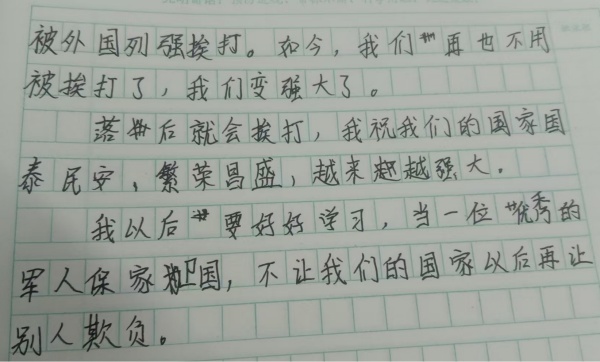 被外国列强挨打。如今，我们再也不用
被挨打了，我们变强大了。
落后就会挨打，我祝我们的国家国
泰民安、繁荣昌盛，越来越强大。
我以后要好好学习，当一位优秀的
军人保家卫国，不让我们的国家以后再让
别人欺负。